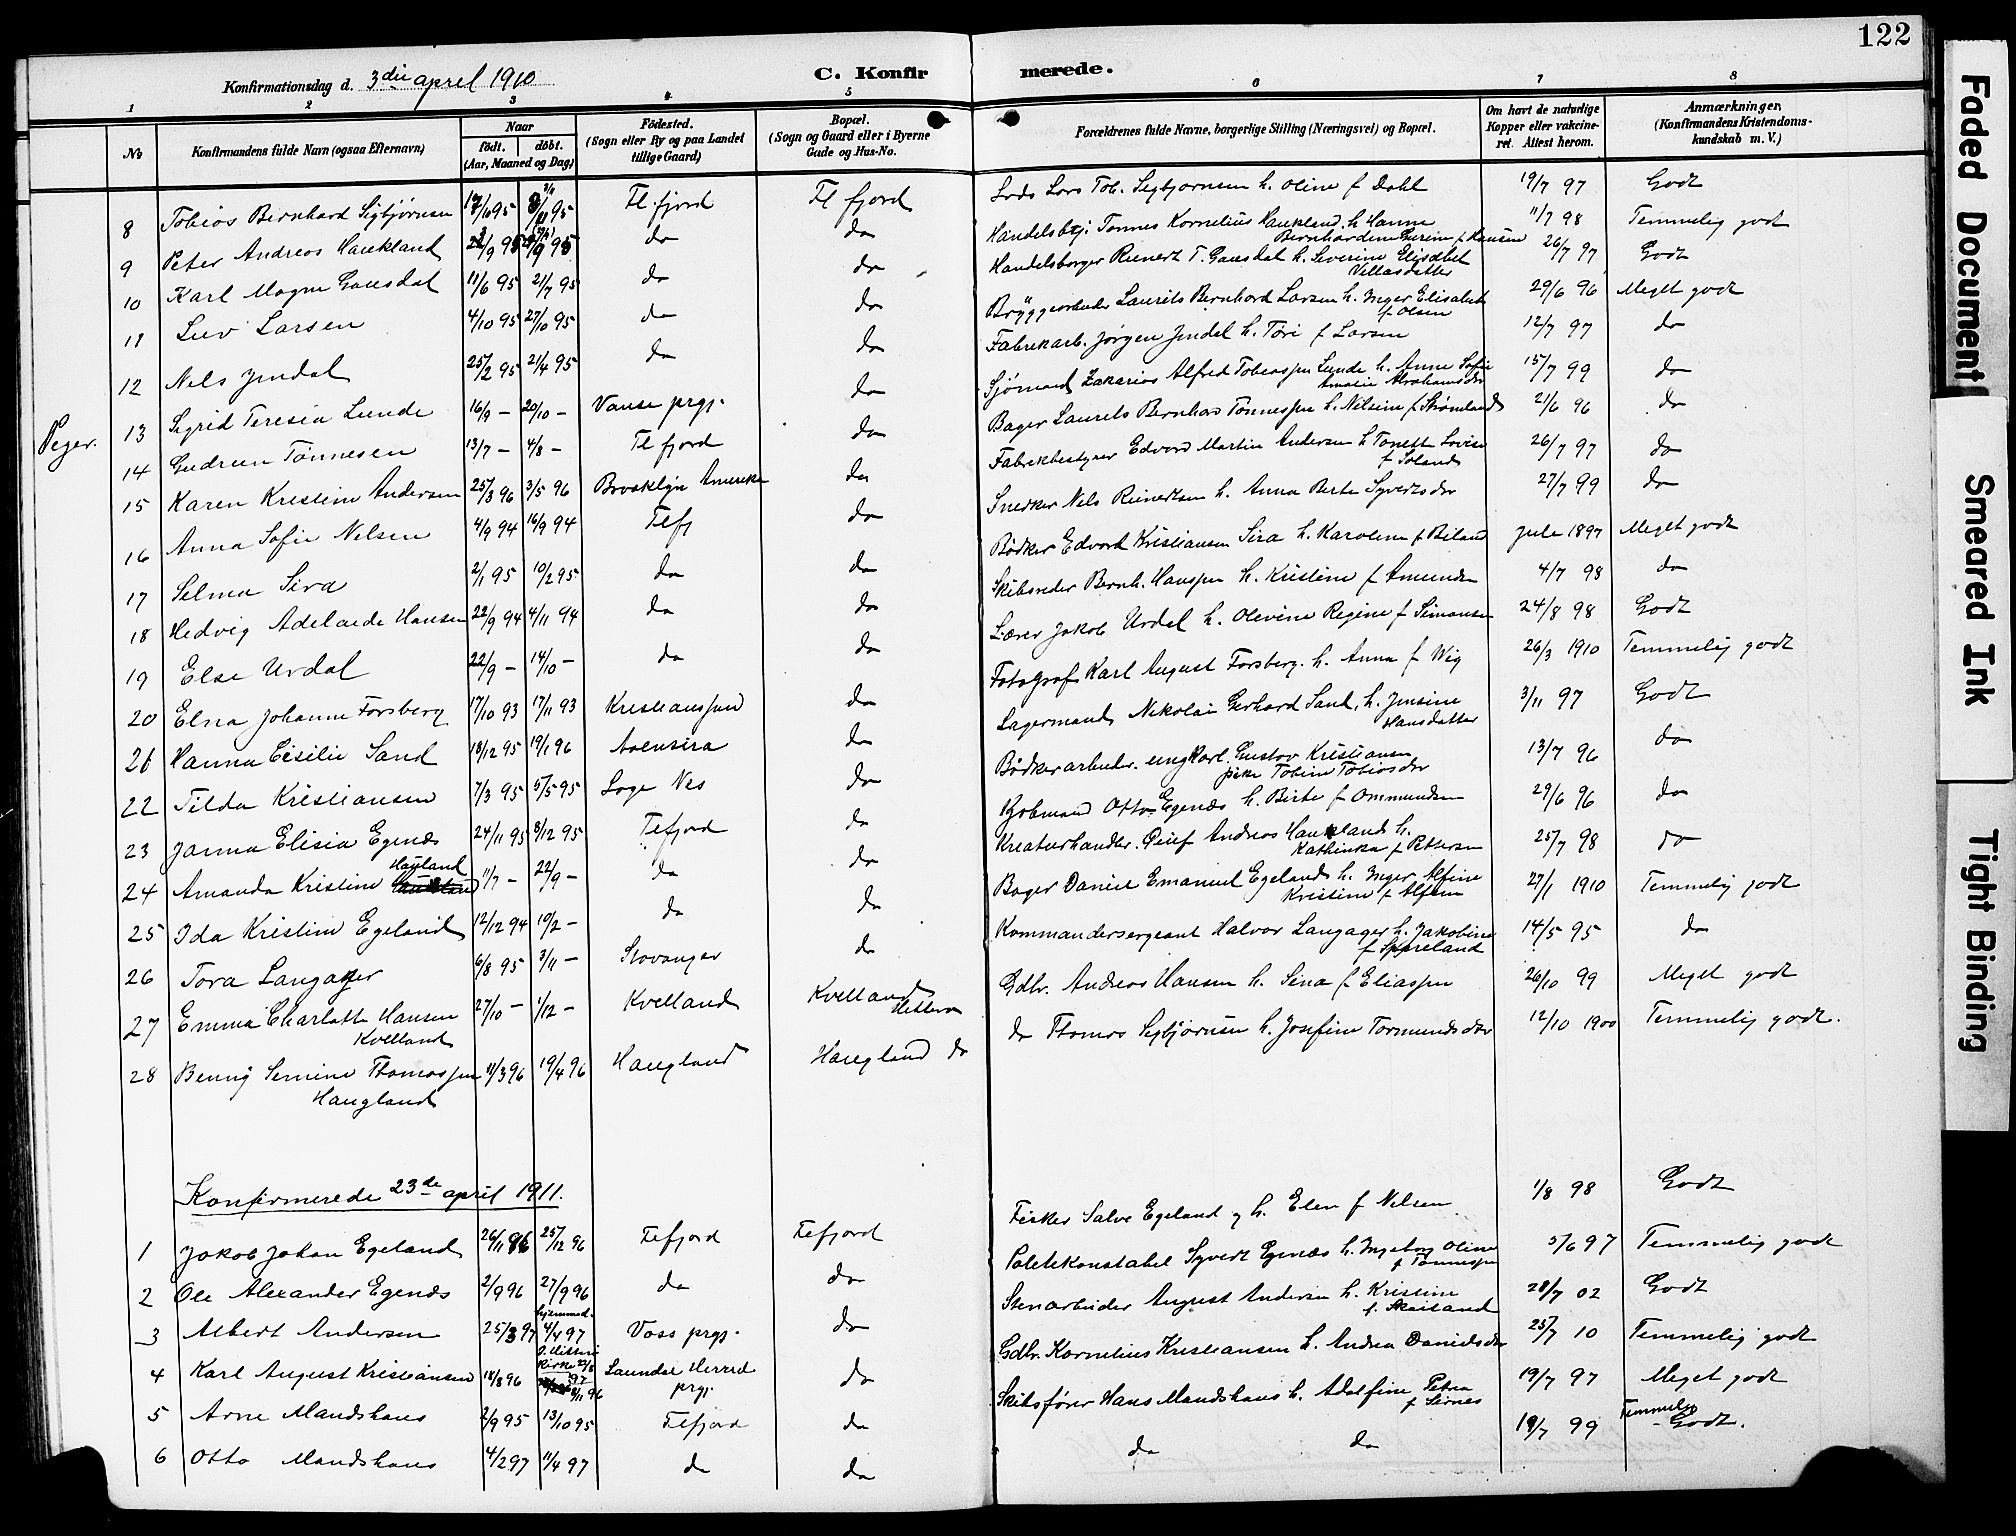 122
Konfirmationsdag d. 3die april 1910
C. Konfirmerede.
1 2 3 4 5 6 7 8
No
Konfirmandens fulde Navn (ogsaa Efternavn)
Naar
født. døbt.
(Aar, Maaned og Dag)
Fødested.
(Sogn eller By og paa Landet
tillige Gaard)
Bopæl.
(Sogn og Gaard eller i Byerne
Gade og Hus-No.
Forældrenes fulde Navne, borgerlige Stilling (Næringsvei) og Bopæl.
Om havt de naturlige
Kopper eller vakcine-
ret. Attest herom.
Anmærkninger.
(Konfirmandens Kristendoms-
kundskab m. V.)
8 Tobias Bernhard Sigbjørnsen Fl. fjord Fl fjord Lods Lars Tob. Sigbjørnsen h. Oline f Dahl 19/7 97 Godt
9 Peter Andreas Haukland do do Handelsbtj. Tønnes Kornelius Haukland h. Hanne 11/7 98 Temmelig godt
f Hansen
10 Karl Magne Gausdal 11/6 95 21/7 95 do do Handelsborger Reinert T. Gausdal h. Severine Elisabet 26/7 97 Godt
Vellasdatter
11 Leiv Larsen 4/10 95 27/10 95 do do Bryggearbeider Laurits Bernhard Larsen h. Inger Elisabet 29/6 96 Meget godt
f Olsen
12 Nels Jendal 25/2 95 21/4 95 do do Fabrikarb. Jørgen Jendal h. Tori f Larsen 12/7 97 do
Piger.
13 Sigrid Teresia Lunde 16/9 – 20/10 – Vanse prgj. do Sjømand Zakarias Alfred Tobiassen Lunde h. Anne Sofie 15/7 99 do
Amalie Abrahamsdtr
14 Gudrun Tønnesen 13/7 – 4/8 – Fl fjord do Bager Laurits Bernhard Tønnessen h. Nilsine f Strømland 21/6 96 do
15 Karen Kristine Andersen 25/3 96 3/5 96 Brooklyn Amerika do Fabrikbestyrer Edvard Martin Andersen h Tonette Lovise 26/7 97 do
f Soland
16 Anna Sofie Nelsen 4/9 94 16/9 94 Flefj do Snedker Nels Reinertsen h. Anna Berte Syvertsdtr 27/7 99 do
17 Selma Sira 2/1 95 10/2 95 do do Bødker Edvard Kristiansen Sira h. Karoline f Biland Jule 1897 Meget godt
18 Hedvig Adelaide Hansen 22/9 94 4/11 94 do do Skibsreder Bernh. Hanssen h. Kristine f Amundsen 4/7 98 do
19 Else Urdal 22/9 – 14/10 – do do Lærer Jakob Urdal h. Olevine Regine f Simonsen 24/8 98 Godt
20 Elna Johanne Forsberg 17/10 93 17/11 93 Kristianssund do Fotograf Karl August Forsberg. h. Anna f Wig 26/3 1910 Temmelig godt
21 Hanna Cesilie Sand 18/12 95 19/1 96 Aaensira do Lagermand Nikolai Gerhard Sand, h. Jensine 3/11 97 Godt
Hansdatter
22 Tilda Kristiansen 7/3 95 5/5 95 Loge Nes do Bødkerarbeider. ungkarl Gustav Kristiansen 13/7 96 do
pike Tobine Tobiasdtr
23 Janna Elisia Egenæs 24/11 95 8/12 95 Flefjord do Kjøbmand Otto Egenæs h. Birte f Ommundsen 29/6 96 do
24 Amanda Kristine Haukland 11/7 – 22/9 – do do Kreaturhandler. Peief Andreas Haukland h. 25/7 98 do
Kathinka f Pettersen
25 Ida Kristine Egeland 12/12 94 10/2 – do do Bager Daniel Emanuel Egeland h. Inger Alfine 27/1 1910 Temmelig godt
Kristine f Alfsen
26 Tora Langaker 6/8 95 3/11 – Stavanger do Kommandersergeant Halvor Langager h. Jakobine 14/5 95 do
27 Emma Charlotte Hansen 27/10 – 1/12 – Kvelland Kvelland Gdbr. Andreas Hansen h. Sina f Eliassen 26/10 99 Meget godt
Kvelland Hitterø
28 Benny Semine Thomassen 11/3 96 19/4 96 Haugland Haugland do do Thomas Sigbjørnsen h. Josefine Tormundsdtr 12/10 1900 Temmelig godt.
Haugland
Konfirmerede 23de april 1911.
1 Jakob Johan Egeland 26/11 96 25/12 96 Flefjord Flefjord Fisker Salve Egeland og h. Elen f Nelsen 1/8 98 Godt
2 Ole Alexander Egenæs 2/9 96 27/9 96 do do Politikonstabel Syvert Egenæs h. Ingeborg Oline 5/6 97 Temmelig godt
f Tønnessen
3 Albert Andersen 25/3 97 hjemmed. 4/4 97 Voss prgj. do Stenarbeider August Andersen h. Kristine 28/7 02 Godt
4 Karl August Kristiansen 18/8 96 Saundal Herred prgj. do Gdbr. Kornelius Kristiansen h. Andrea Danielsdtr 25/7 10 Temmelig godt
5 Arne Mandshaus 2/9 95 13/10 95 Flefjord do Skibsfører Hans Mandshaus h. Adolfine Petra 19/7 97 Meget godt
f Sirnes
6 Otto Mandshaus 4/2 97 11/4 97 do do do do 19/7 99 Temmelig Godt.
Faded Document
Smeared Ink
Tight Binding